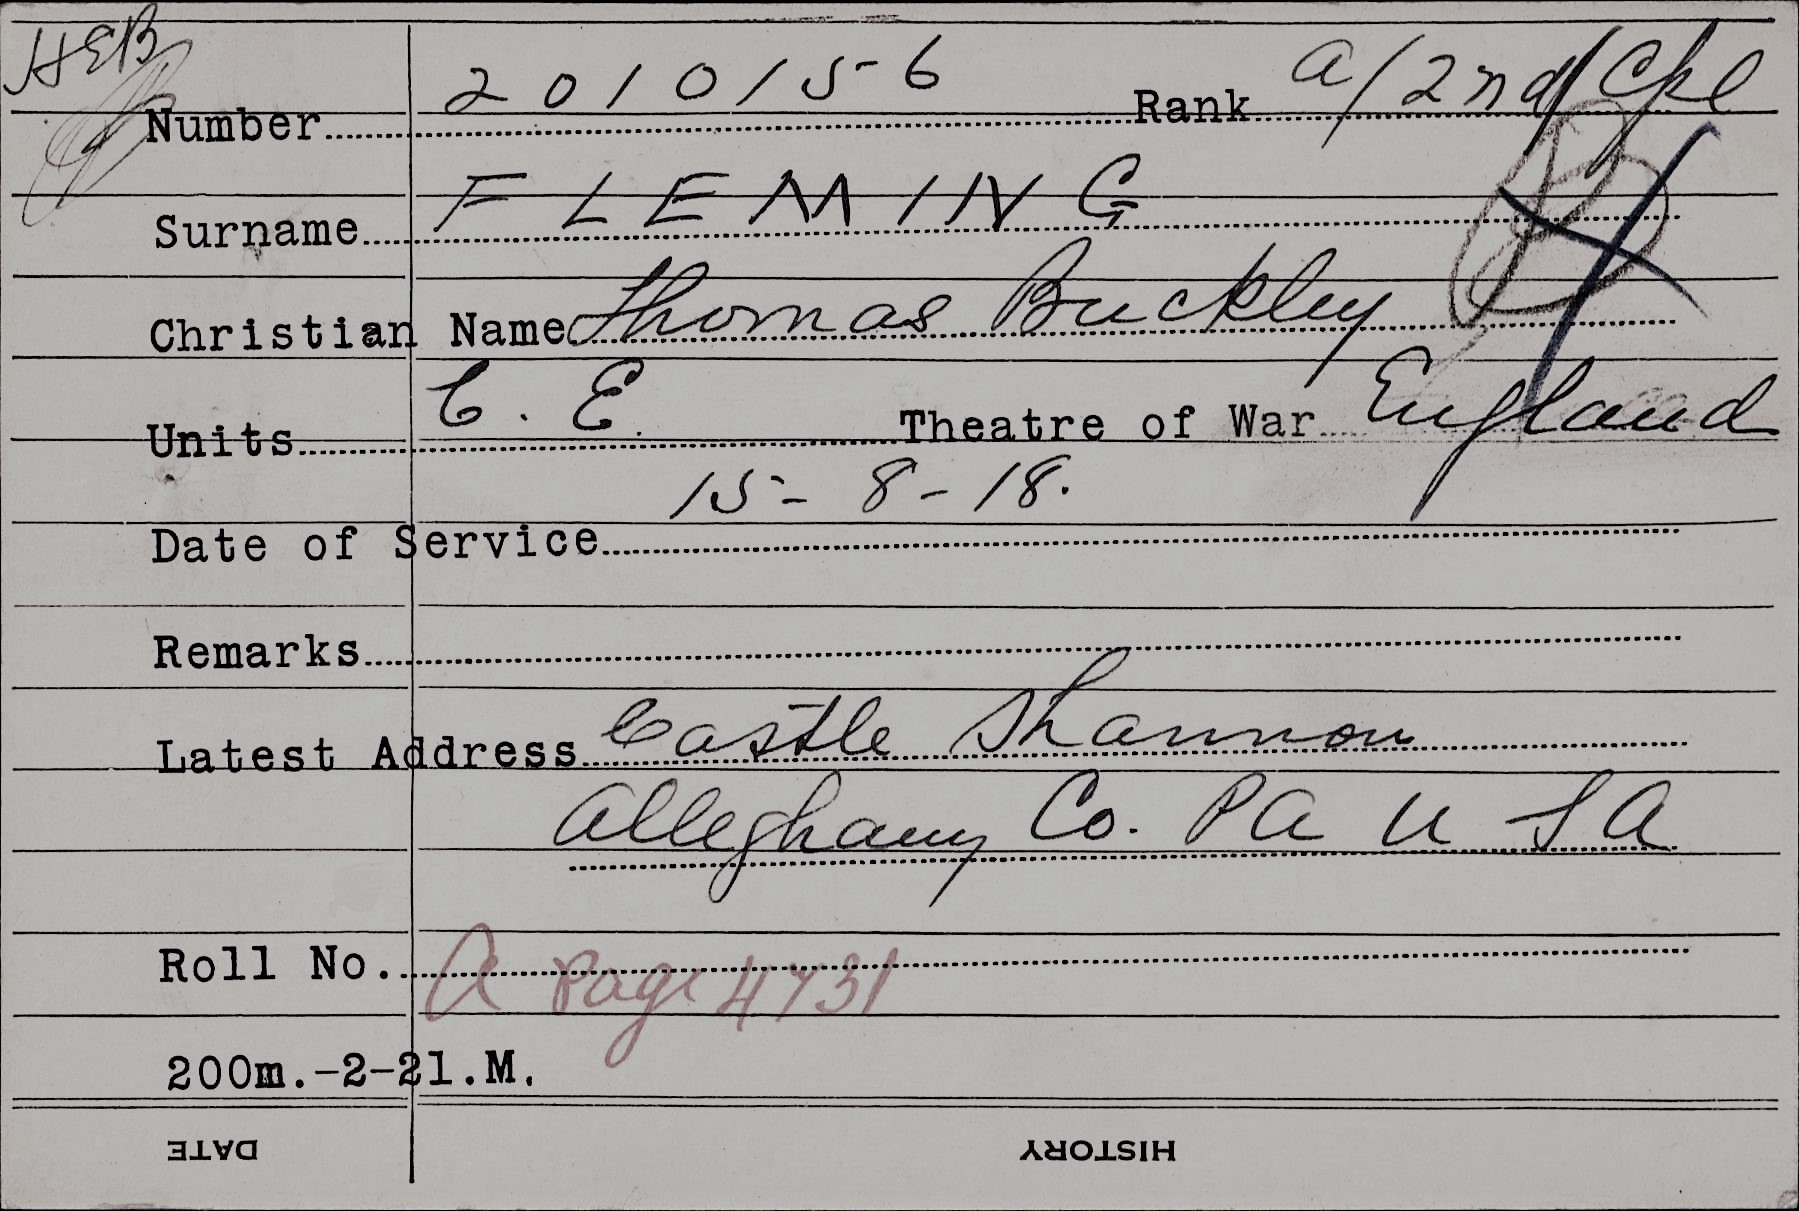 HEB
Number 2010156 Rank a/2nd/Cpl
Surname FLEMING
Christian Name Thomas Buckley
Units C. E. Theatre of War England
Date of Service 15-8-18.
Remarks
Latest Address Castle Shannon
Alleghany Co. PA U S A
Roll No. A Page 4731
200m.-2-21.M.
DATE HISTORY